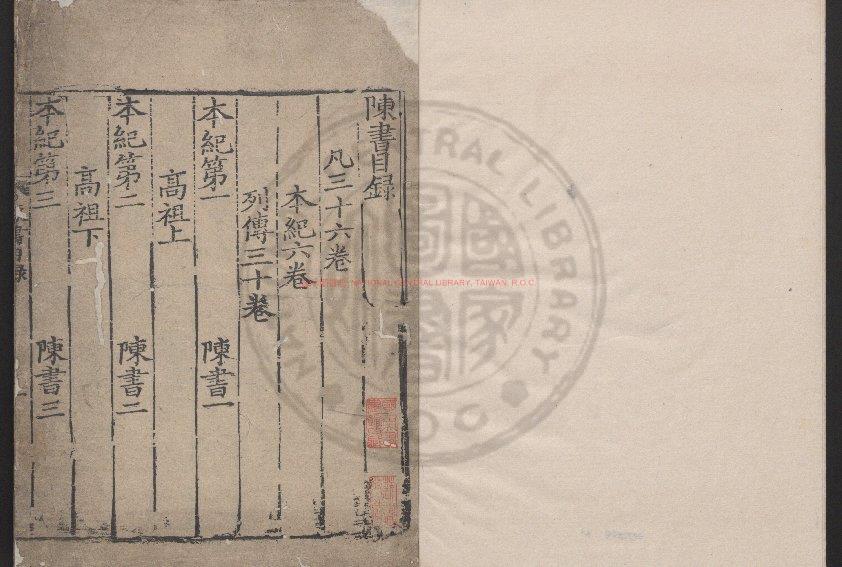 陳書目録
凡三十六卷
本紀六卷
列傳三十卷
本紀第一 陳書一
高祖上
本紀第二 陳書二
高祖下
本紀第三 陳書三
書目録
NATIONAL CENTRAL LIBRARY, TAIWAN, R.O.C.